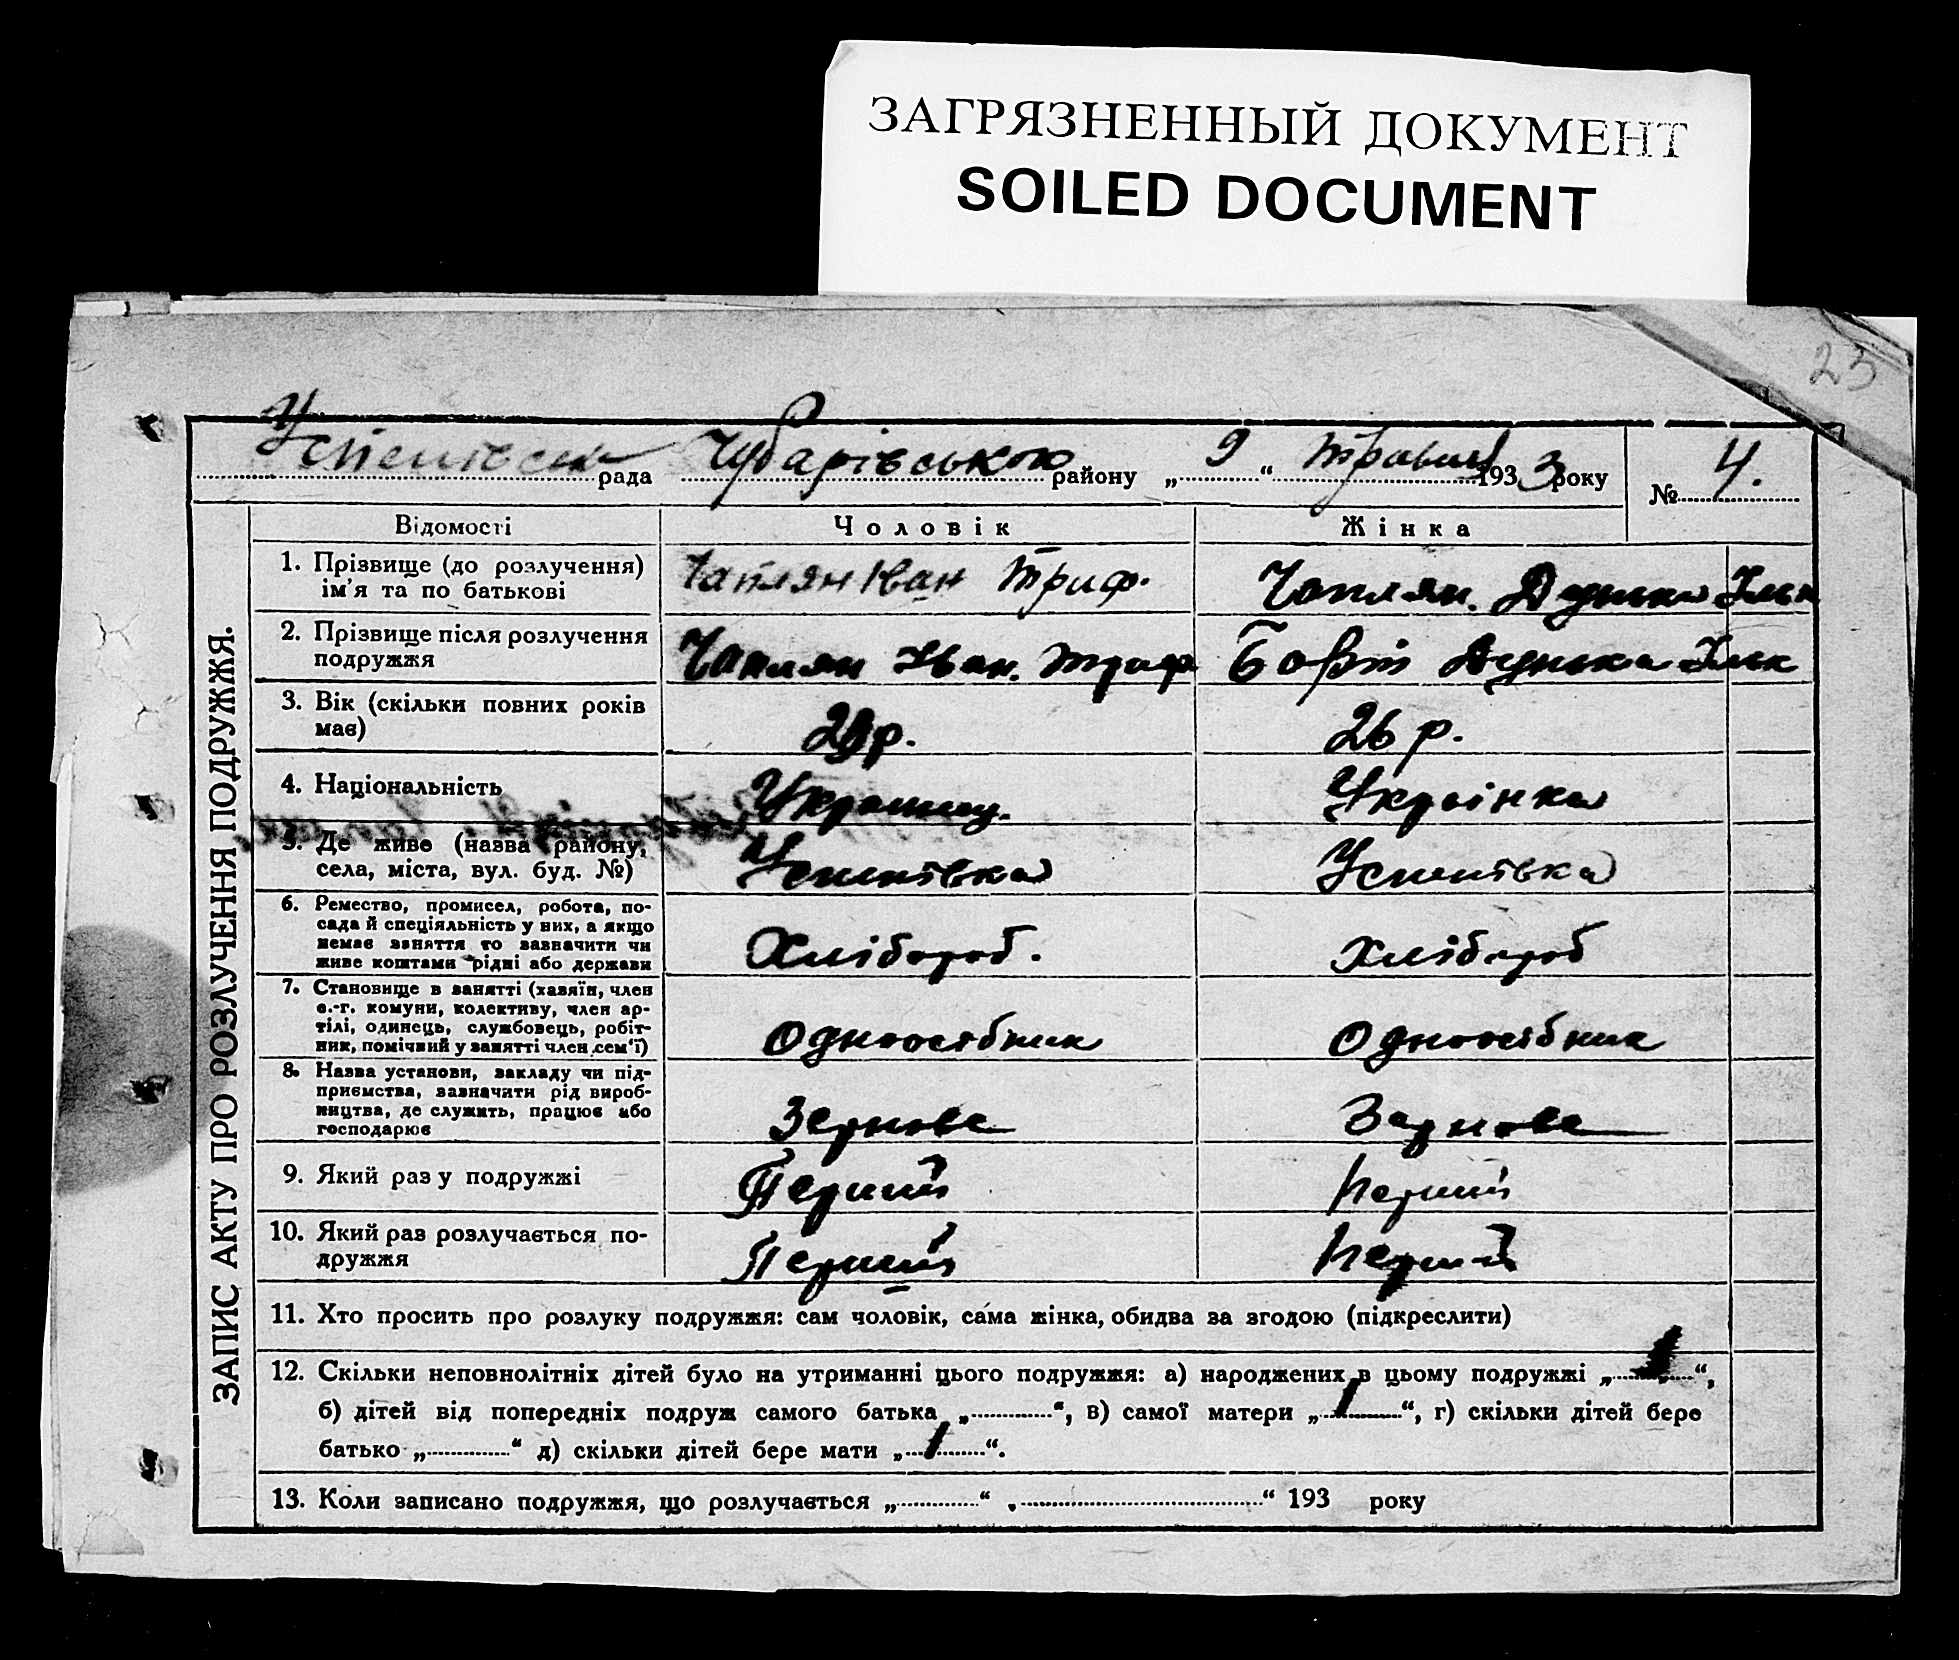 ЗАГРЯЗНЕННЫЙ ДОКУМЕНТ
SOILED DOCUMENT
23
Успенівська рада Чубарівською району „ 9 “ травня 1933 року № 4.
ЗАПИС АКТУ ПРО РОЗЛУЧЕННЯ ПОДРУЖЖЯ.
Відомості Чоловік Жінка
1. Прізвище (до розлучення) ім'я та по батькові Чаплян Іван Триф. Чаплян. Дунька Ільк
2. Прізвище після розлучення подружжя Чаплян Іван. Триф Дунька Ільк
3. Вік (скільки повних років має) р. 26 р.
4. Національність Украинец. Українка
5. Де живе (назва району, села, міста, вул. буд. №) Успенівка Успенівка
6. Ремество, промисел, робота, по-
сада й спеціяльність у них, а якщо
немає заняття то зазначити чи
живе коштами рідні або держави Хлібороб. Хлібороб
7. Становище в занятті (хазяїн, член
с.-г. комуни, колективу, член ар-
тілі, одинець, службовець, робіт-
ник, помічний у занятті член сем'ї) Одноосібник Одноосібник
8. Назва установи, закладу чи під-
приємства, зазначити рід вироб-
ництва, де служить, працює або
господарює Зернове Зернове
9. Який раз у подружжі Перший Перший
10. Який раз розлучається по-
дружжя Перший Перший
11. Хто просить про розлуку подружжя: сам чоловік, сама жінка, обидва за згодою (підкреслити)
12. Скільки неповнолітніх дітей було на утриманні цього подружжя: а) народжених в цьому подружжі „ 1 “,
б) дітей від попередніх подруж самого батька „ “, в) самої матери „ 1 “, г) скільки дітей бере
батько „ “ д) скільки дітей бере мати „ 1 “.
13. Коли записано подружжя, що розлучається „ “ „ “ 193 року